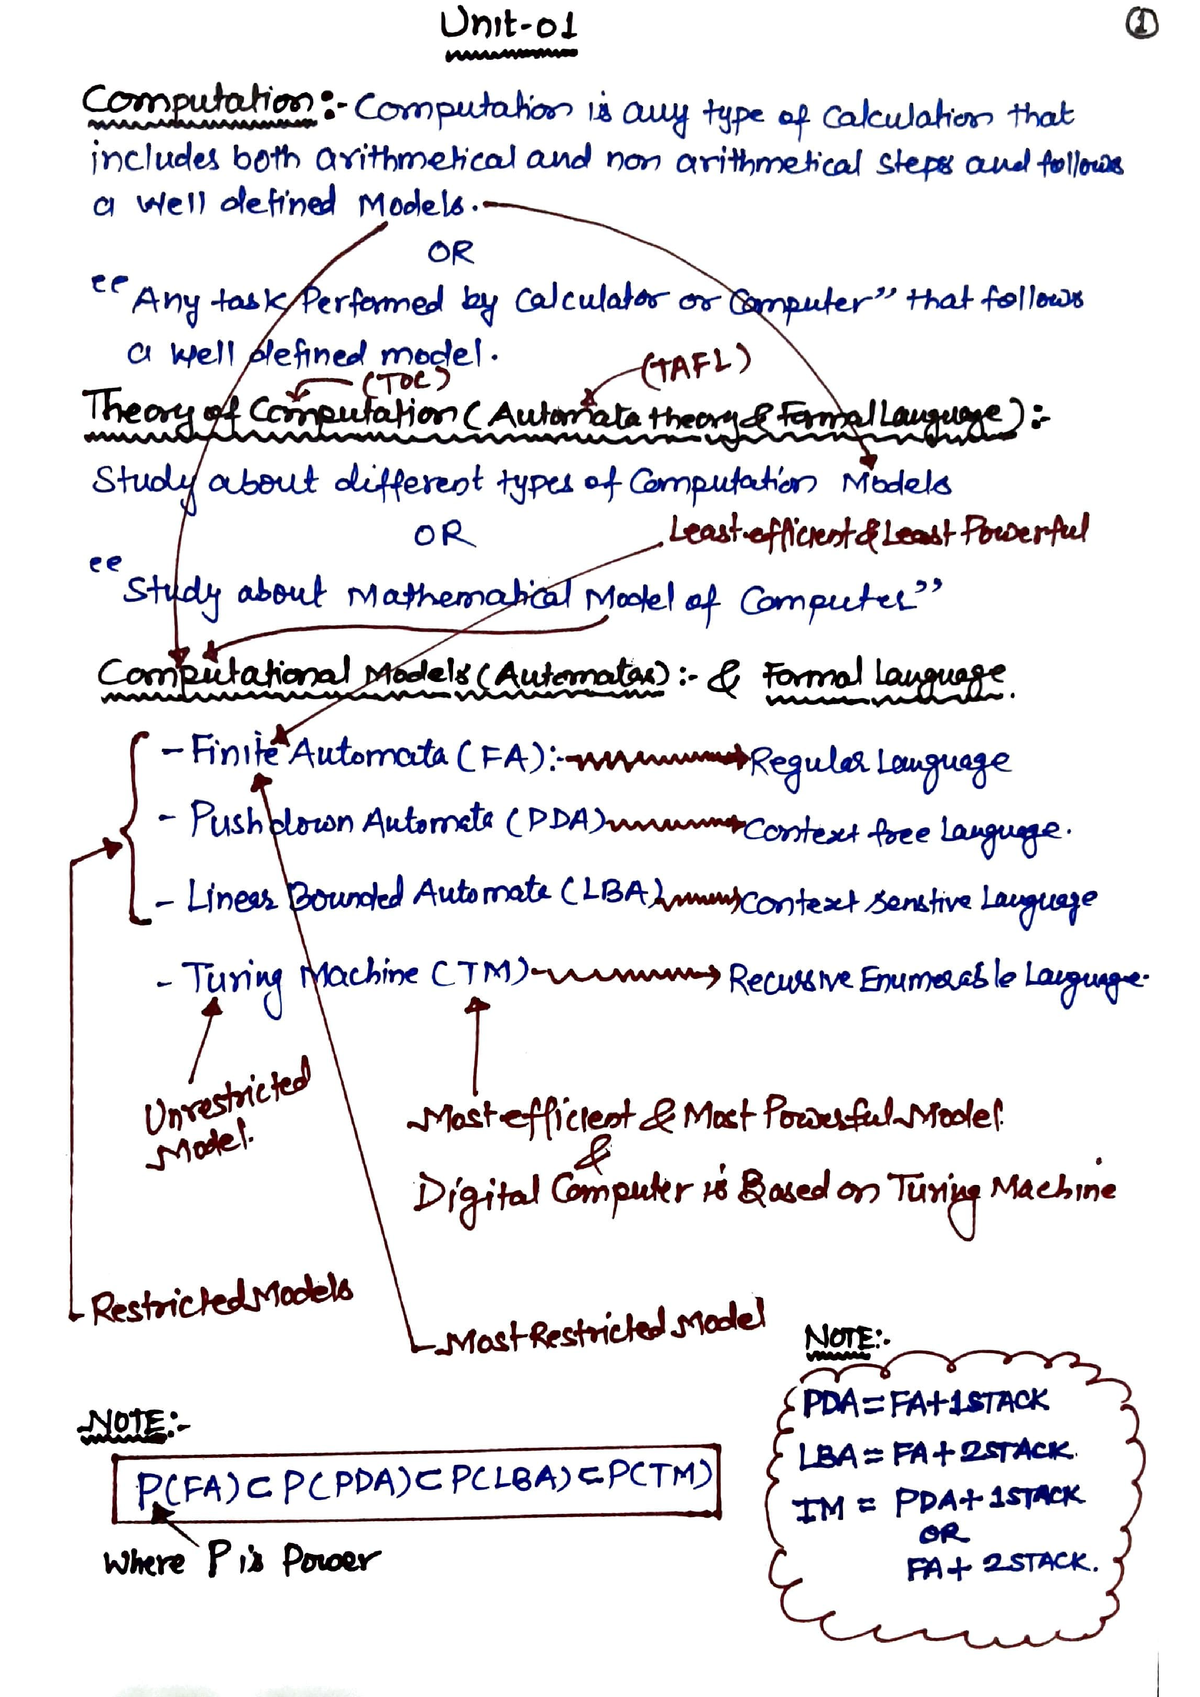 Unit-01
1
Computation :- Computation is any type of Calculation that
includes both arithmetical and non arithmetical steps and follows
a well defined Models.
OR
"Any task Performed by Calculator or Computer" that follows
a well defined model.
(TOC)
(TAFL)
Theory of Computation ( Automata theory & Formal Language ) :-
Study about different types of Computation Models
OR
Least efficient & Least Powerful
"Study about Mathematical Model of Computer"
Computational Models (Automatas) :- & Formal Language.
- Finite Automata (FA) :- Regular Language
- Pushdown Automata (PDA) Context free Language.
- Linear Bounded Automate (LBA) Context Senstive Language
- Turing Machine (TM) - Recursive Enumerable Language.
Unrestricted
Model.
Most efficient & Most Powerful Model.
&
Digital Computer is Based on Turing Machine
Restricted Models
Most Restricted Model
NOTE:-
P(FA) ⊂ P(PDA) ⊂ P(LBA) ⊂ P(TM)
Where P is Power
NOTE:-
PDA = FA + 1 STACK
LBA = FA + 2 STACK.
TM = PDA + 1 STACK
OR
FA + 2 STACK.